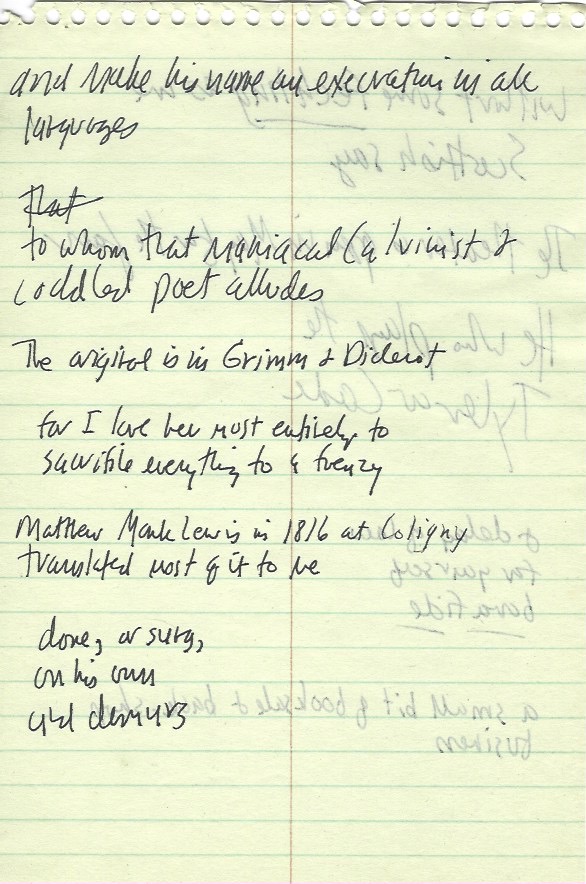 and make his name an execration in all
languages
that
to whom that maniacal Calvinist &
coddled poet alludes
The original is in Grimm & Diderot
for I love her most entirely to
sacrifice everything to a frenzy
Matthew Monk Lewis in 1816 at Coligny
translated most of it to me
done, or sung,
on his own
and demurs